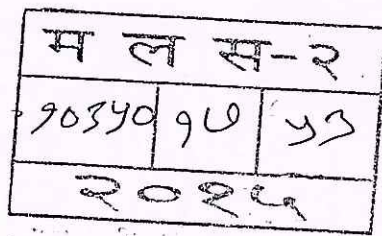 म ल स-२
१०३५० १७ ५३
२०२५